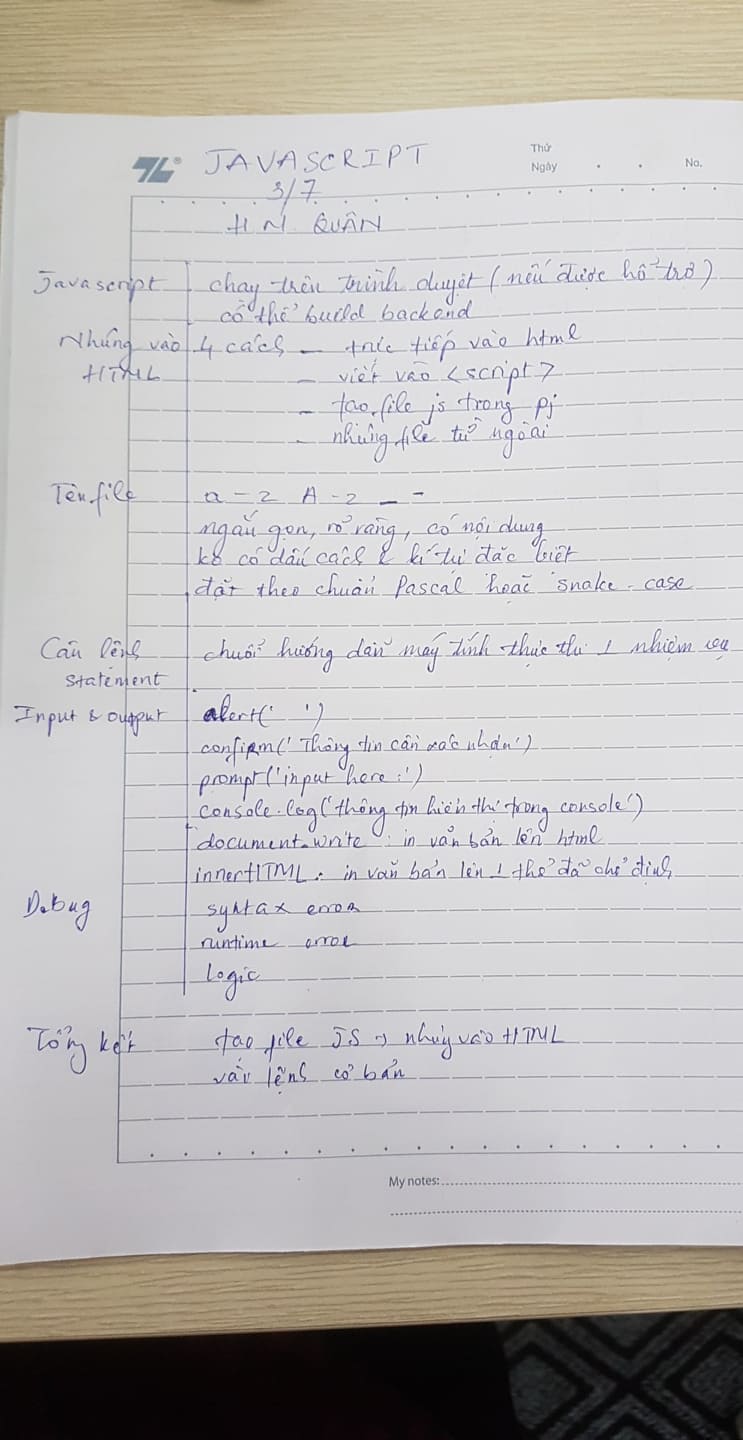 TL® JAVASCRIPT
Thứ
Ngày . . No.
3/7
H N QUÂN
Javascript chạy trên trình duyệt (nếu được hổ trợ)
có thể build backend
Nhúng vào 4 cách – trực tiếp vào html
HTML – viết vào <script>
– tạo file js trong pj
– nhúng file từ ngoài
Tên file a - z A - z _ -
ngắn gọn, rõ ràng, có nội dung
ko có dấu cách & kí tự đặc biệt
đặt theo chuẩn Pascal hoặc snake-case
Câu lệnh chuỗi hướng dẫn máy tính thực thi 1 nhiệm vụ
statement
Input & output alert(' ')
confirm('Thông tin cần xác nhận')
prompt('input here:')
console.log('thông tin hiển thị trong console')
document.write : in văn bản lên html
innerHTML : in văn bản lên 1 thẻ đã chỉ định
Debug syntax error
runtime error
Logic
Tổng kết tạo file JS → nhúng vào HTML
vài lệnh cơ bản
My notes: